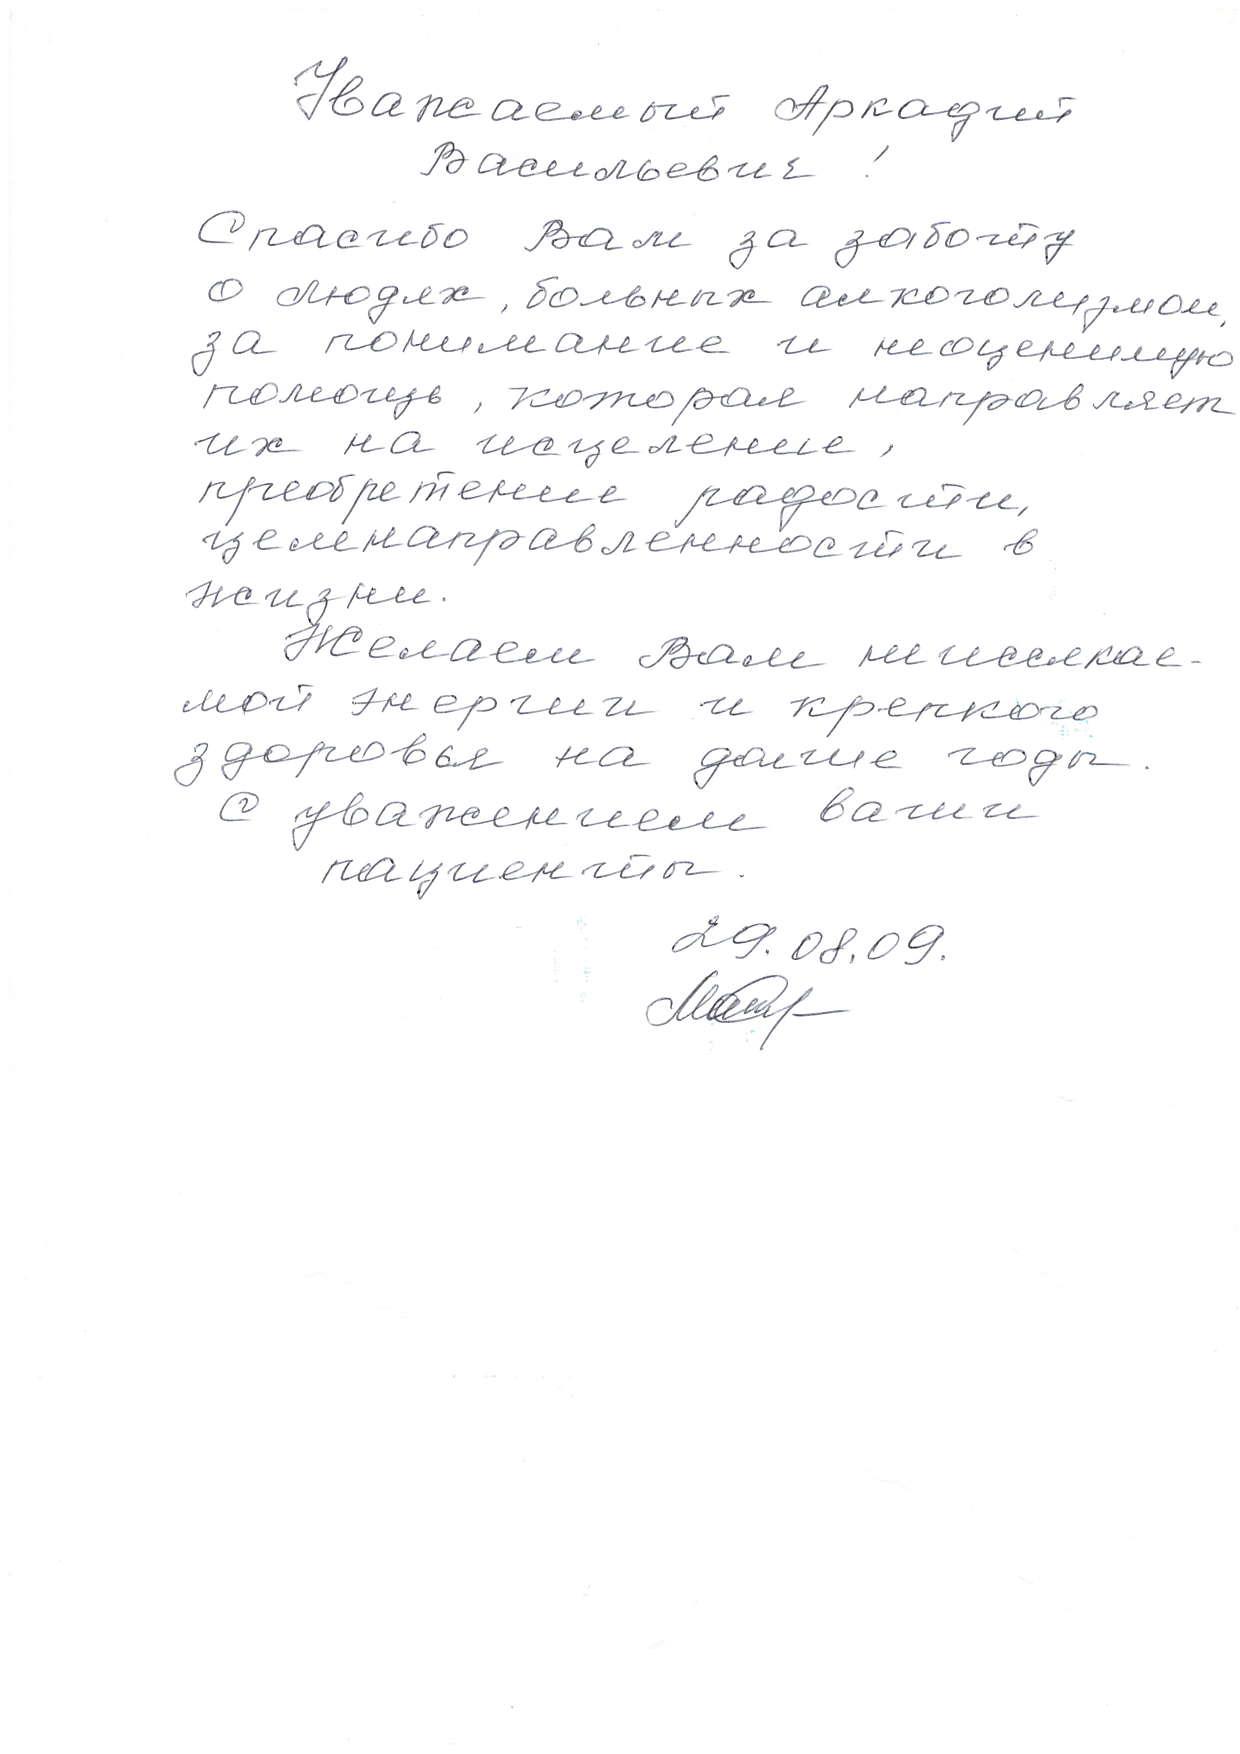 Уважаемый Аркадий
Васильевич!
Спасибо Вам за заботу
о людях, больных алкоголизмом,
за понимание и неоценимую
помощь, которая направляет
их на исцеление,
приобретение радости,
целенаправленности в
жизни.
Желаем Вам неиссякае-
мой энергии и крепкого
здоровья на долгие годы.
С уважением ваши
пациенты.
29.08.09.